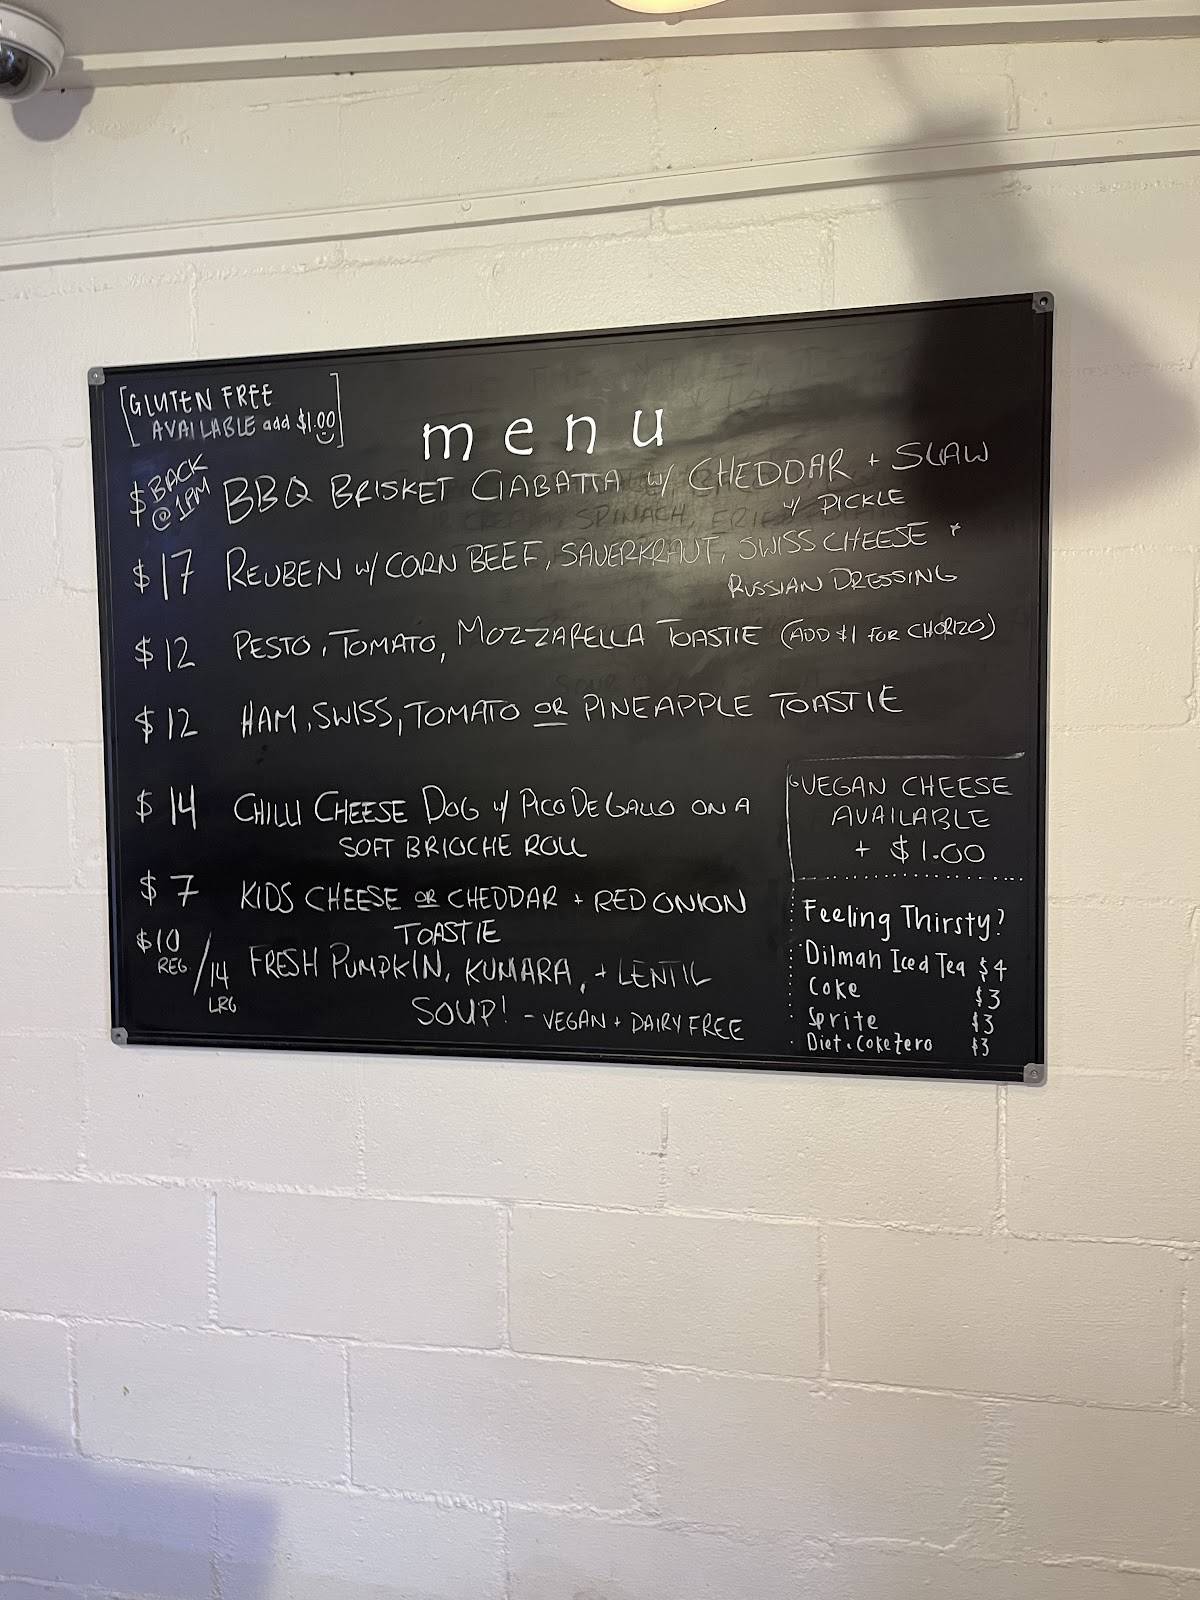 [GLUTEN FREE
AVAILABLE add $1.00]
menu
$ BACK @ 1PM BBQ BRISKET CIABATTA w/ CHEDDAR + SLAW
w/ PICKLE
$17 REUBEN w/ CORN BEEF, SAUERKRAUT, SWISS CHEESE +
RUSSIAN DRESSING
$12 PESTO, TOMATO, MOZZARELLA TOASTIE (ADD $1 FOR CHORIZO)
$12 HAM, SWISS, TOMATO OR PINEAPPLE TOASTIE
$14 CHILLI CHEESE DOG w/ PICO DE GALLO ON A
SOFT BRIOCHE ROLL
$7 KIDS CHEESE OR CHEDDAR + RED ONION
TOASTIE
$10 REG / 14 LRG FRESH PUMPKIN, KUMARA, + LENTIL
SOUP! - VEGAN + DAIRY FREE
VEGAN CHEESE
AVAILABLE
+ $1.00
Feeling Thirsty?
Dilmah Iced Tea $4
Coke $3
Sprite $3
Diet. Coke Zero $3